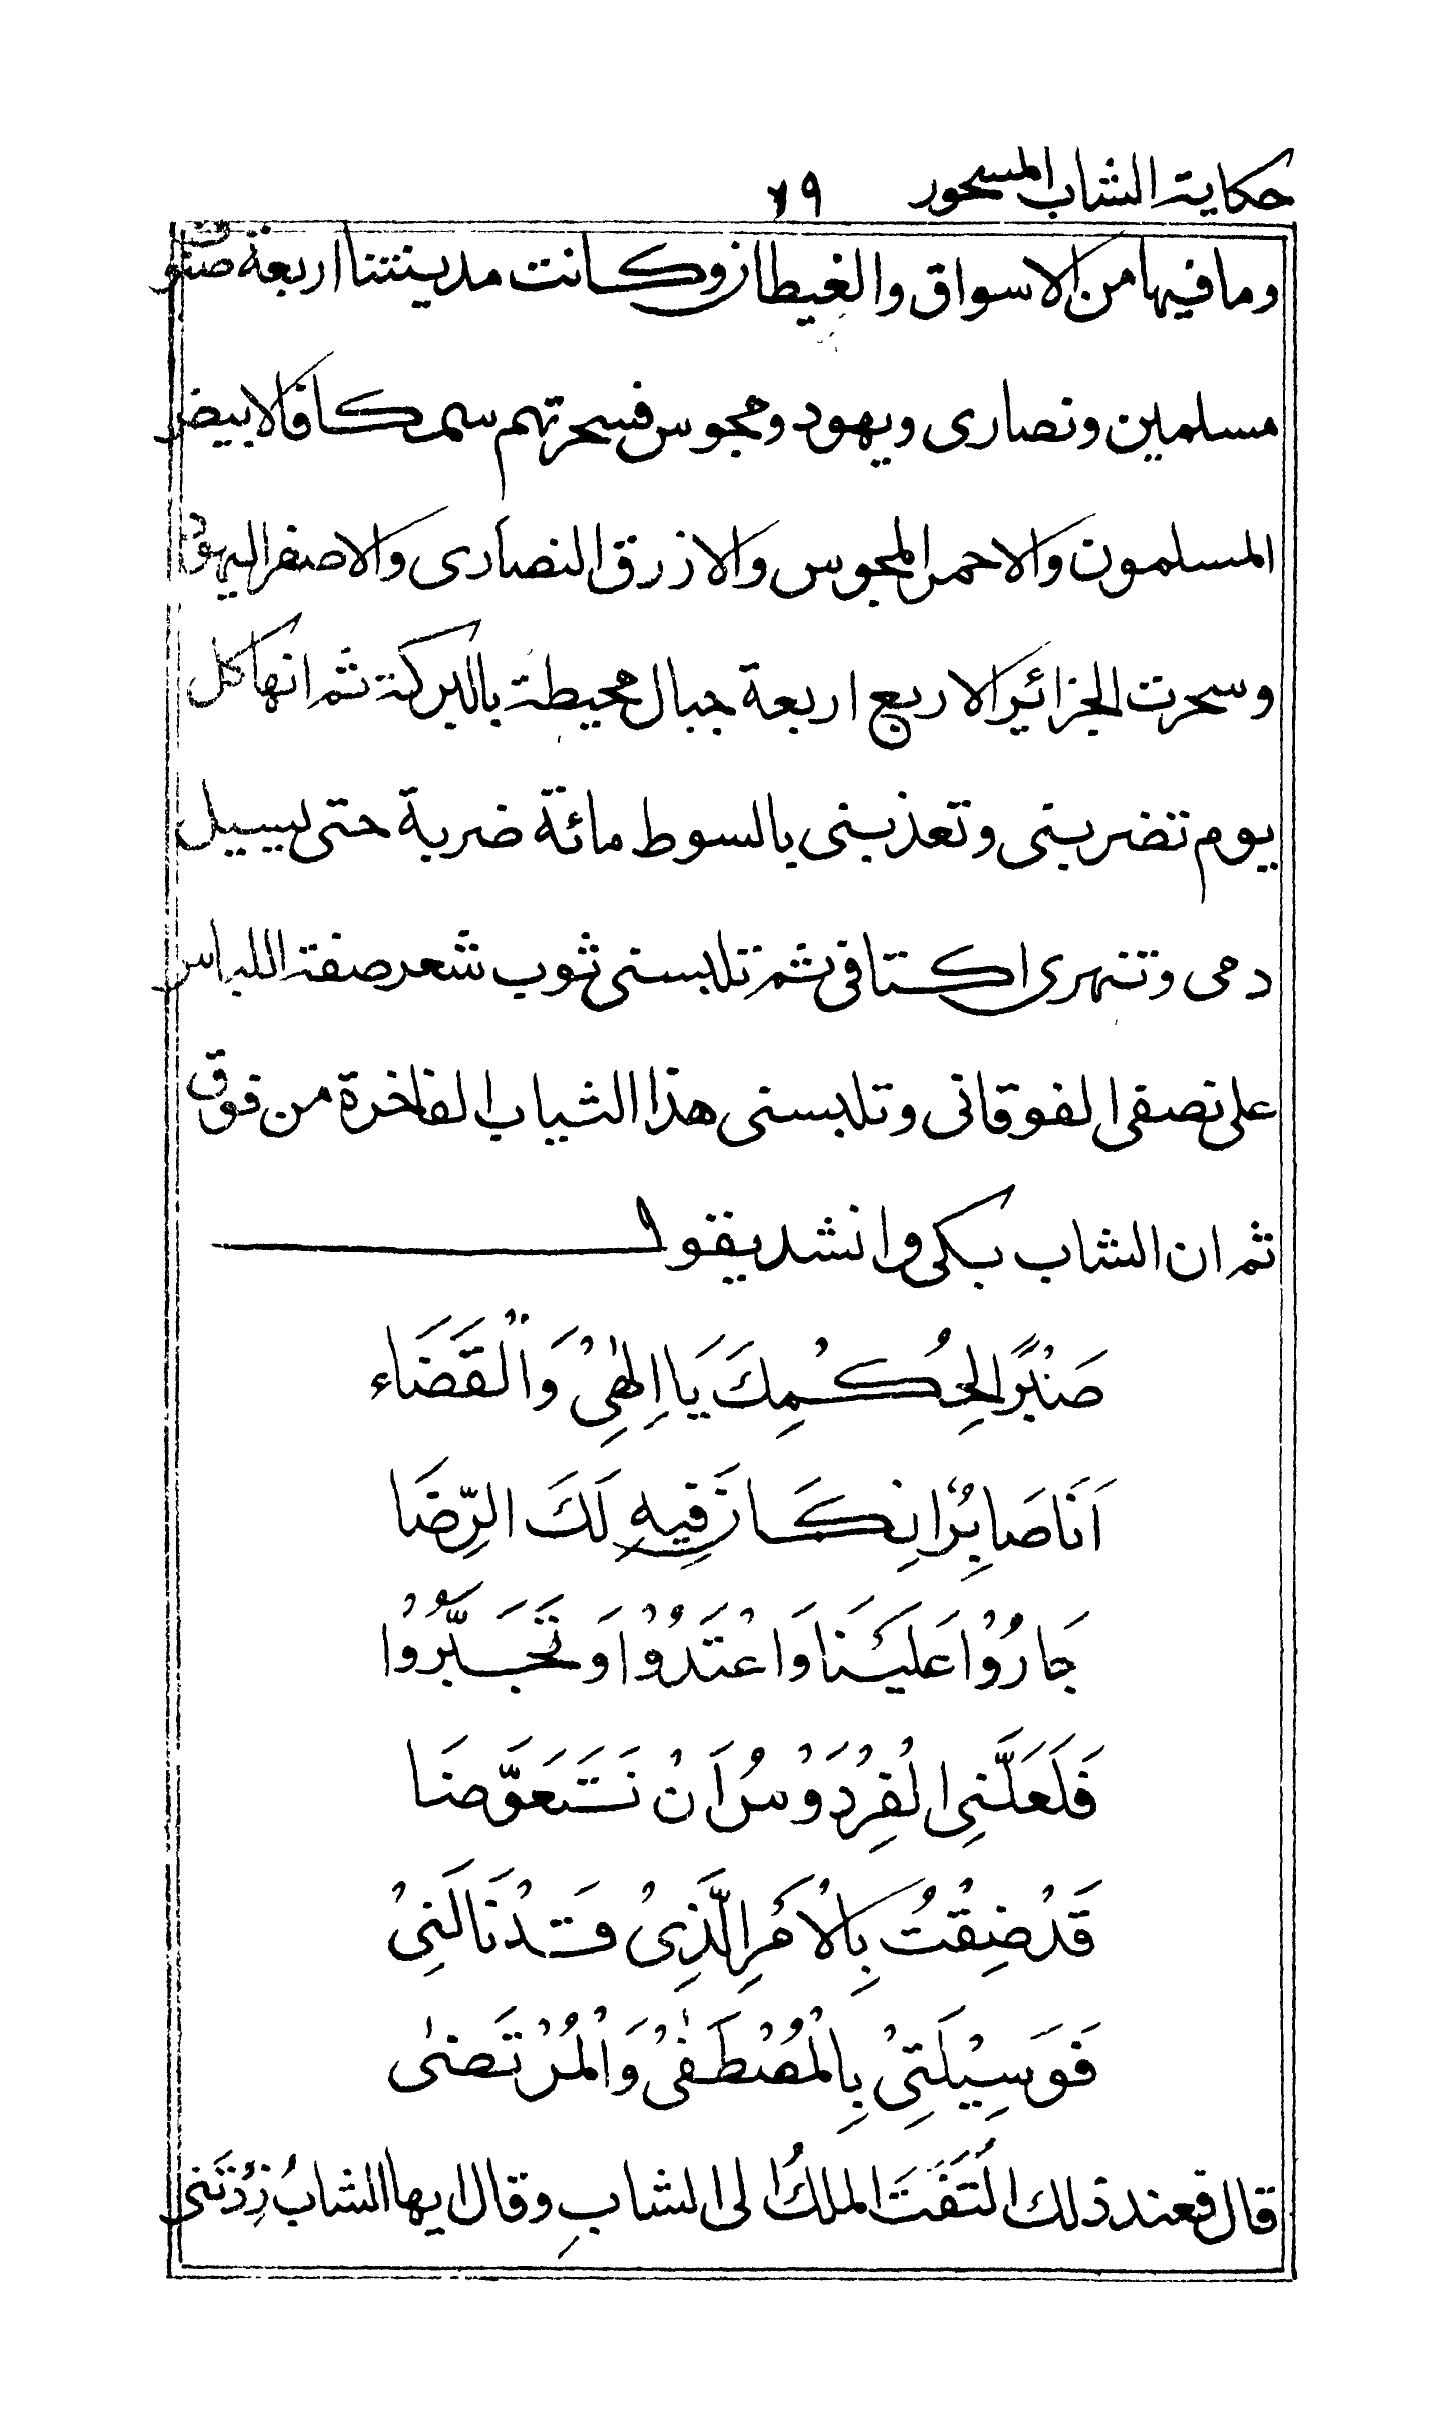 حكاية الشاب المسحور ٦٩
وما فيها من الاسواق والغيطان وكانت مدينتنا اربعة صنوف
مسلمين ونصارى ويهود ومجوس فسحرتهم سمكا فالابيض
المسلمون والاحمر المجوس والازرق النصارى والاصفر اليهود
وسحرت الجزائر الاربع اربعة جبال محيطة بالبركة ثم انها كل
يوم تضربنى وتعذبنى بالسوط مائة ضربة حتى يسيل
دمى وتنهرى اكتافى ثم تلبسنى ثوب شعر صفة اللباس
على نصفى الفوقانى وتلبسنى هذا الثياب الفاخرة من فوق
ثم ان الشاب بكى وانشد يقول
صَبْرًا لِحُكْمِكَ يَا اِلٰهِىْ وَالْقَضَاء
اَنَا صَابِرٌ اِنْ كَانَ فِيهِ لَكَ الرِّضَا
جَارُوْا عَلَيْنَا وَاعْتَدُوْا وَتَجَبَّرُوْا
فَلَعَلَّنِى الْفِرْدَوْسُ اَنْ نَتَعَوَّضَا
قَدْ ضِقْتُ بِالْاَمْرِ الَّذِىْ قَدْ نَالَنِىْ
فَوَسِيْلَتِىْ بِالْمُصْطَفٰىْ وَالْمُرْتَضٰى
قال فعند ذلك الْتَفَتَ الملكُ الى الشابِ وقال ايها الشابُ زِدْتَنى